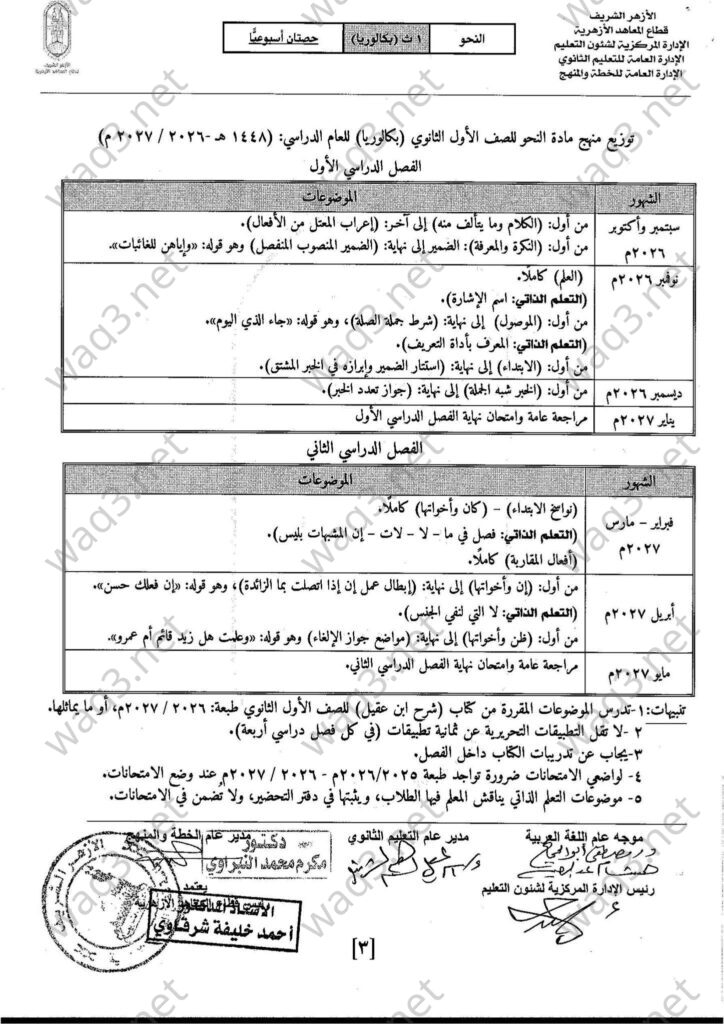 الأزهر الشريف
قطاع المعاهد الأزهرية
الإدارة المركزية لشئون التعليم
الإدارة العامة للتعليم الثانوي
الإدارة العامة للخطة والمنهج
النحو
١ ث (بكالوريا)
حصتان أسبوعيًّا
الأزهر الشريف
قطاع المعاهد الأزهرية
توزيع منهج مادة النحو للصف الأول الثانوي (بكالوريا) للعام الدراسي: (١٤٤٨ هـ -٢٠٢٦ / ٢٠٢٧ م)
الفصل الدراسي الأول
الشهور
الموضوعات
سبتمبر وأكتوبر
٢٠٢٦م
من أول: (الكلام وما يتألف منه) إلى آخر: (إعراب المعتل من الأفعال).
من أول: (النكرة والمعرفة): الضمير إلى نهاية: (الضمير المنصوب المنفصل) وهو قوله: «وإياهن للغائبات».
نوفمبر ٢٠٢٦م
(العلم) كاملًا.
(التعلم الذاتي: اسم الإشارة).
من أول: (الموصول) إلى نهاية: (شرط جملة الصلة)، وهو قوله: «جاء الذي اليوم».
(التعلم الذاتي: المعرف بأداة التعريف).
من أول: (الابتداء) إلى نهاية: (استتار الضمير وإبرازه في الخبر المشتق).
ديسمبر ٢٠٢٦م
من أول: (الخبر شبه الجملة) إلى نهاية: (جواز تعدد الخبر).
يناير ٢٠٢٧م
مراجعة عامة وامتحان نهاية الفصل الدراسي الأول
الفصل الدراسي الثاني
الشهور
الموضوعات
فبراير – مارس
٢٠٢٧م
(نواسخ الابتداء) – (كان وأخواتها) كاملًا.
(التعلم الذاتي: فصل في ما – لا – لات – إن المشبهات بليس).
(أفعال المقاربة) كاملًا.
أبريل ٢٠٢٧م
من أول: (إن وأخواتها) إلى نهاية: (إبطال عمل إن إذا اتصلت بما الزائدة)، وهو قوله: «إن فعلك حسن».
(التعلم الذاتي: لا التي لنفي الجنس).
من أول: (ظن وأخواتها) إلى نهاية: (مواضع جواز الإلغاء) وهو قوله: «وعلمت هل زيد قائم أم عمرو».
مايو ٢٠٢٧م
مراجعة عامة وامتحان نهاية الفصل الدراسي الثاني.
تنبيهات: ١-تدرس الموضوعات المقررة من كتاب (شرح ابن عقيل) للصف الأول الثانوي طبعة: ٢٠٢٦ / ٢٠٢٧م، أو ما يماثلها.
٢ -لا تقل التطبيقات التحريرية عن ثمانية تطبيقات (في كل فصل دراسي أربعة).
٣-يجاب عن تدريبات الكتاب داخل الفصل.
٤- لواضعي الامتحانات ضرورة تواجد طبعة ٢٠٢٥/٢٠٢٦م - ٢٠٢٦ / ٢٠٢٧م عند وضع الامتحانات.
٥- موضوعات التعلم الذاتي يناقش المعلم فيها الطلاب، ويثبتها في دفتر التحضير، ولا تُضمن في الامتحانات.
موجه عام اللغة العربية
مدير عام التعليم الثانوي
مدير عام الخطة والمنهج
دكتور
مكرم محمد النبراوي
رئيس الإدارة المركزية لشئون التعليم
يعتمد
أحمد خليفة شرقاوي
الأزهر الشريف
[٣]
waq3.net